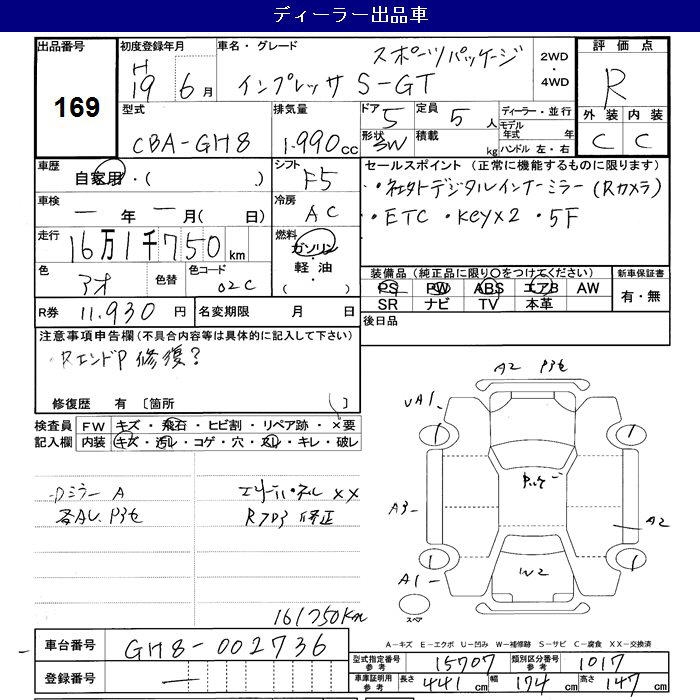 ディーラー出品車
出品番号
169
初度登録年月
H
19 6月
車名・グレード
スポーツパッケージ
インプレッサ S-GT
2WD
・
4WD
評価点
R
外装 内装
C C
型式
CBA-GH8
排気量
1.990cc
ドア 5
形状 5W
定員 5人
積載 kg
ディーラー・並行
モデル
年式 年
ハンドル 左・右
車歴
自家用・( )
シフト
F5
車検
一年一月( 日)
冷房
AC
走行
16万1千750km
燃料
ガソリン
・
軽油
( )
色
アオ
色替
色コード
02C
R券 11.930円
名変期限 月 日
セールスポイント (正常に機能するものに限ります)
・社外デジタルインナーミラー(Rカメラ)
・ETC ・Keyx2 ・5F
装備品(純正品に限り○をつけてください)
PS PW ABS エアB AW
SR ナビ TV 本革
新車保証書
有・無
後日品
注意事項申告欄(不具合内容等は具体的に記入して下さい)
RエンドP 修復?
修復歴 有 〔箇所 〕
検査員
記入欄
FW キズ・飛石・ヒビ割・リペア跡・×要
内装 キズ・汚レ・コゲ・穴・スレ・キレ・破レ
Dミラー A
各AL P3セ
エンドパネル XX
Rフロア 修正
161750Km
A2 P3セ
UA1
1
1
A3
A2
1
1
A1
W2
スペア
A-キズ E-エクボ U-凹み W-補修跡 S-サビ C-腐食 XX-交換済
車台番号 GH8-002736
登録番号 一
型式指定番号
参考
15707
類別区分番号
参考
1017
車庫証明用
参考
長さ 441cm 幅 174cm 高さ 147cm